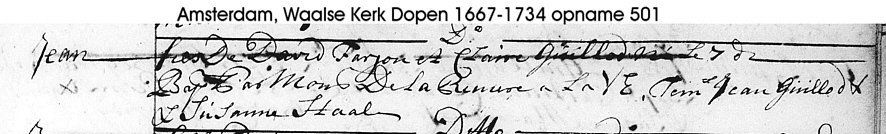 Amsterdam, Waalse Kerk Dopen 1667-1734 opname 501
Do
Jean fils De David Farjon et Claire Guillod né le 7 do
Bap Par Mons De la a La VE, Tem Jean Guillod &
& Susanne Staal